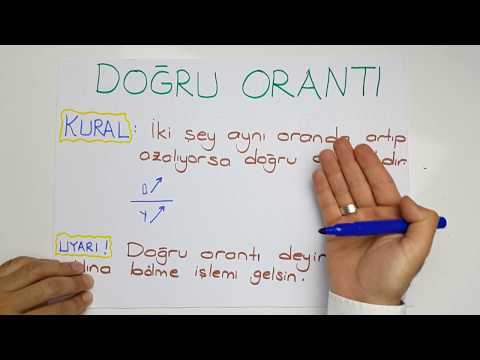 DOĞRU ORANTI
KURAL: İki şey aynı oranda artıp
azalıyorsa doğru
D
Y
UYARI! Doğru orantı
bölme işlemi gelsin.